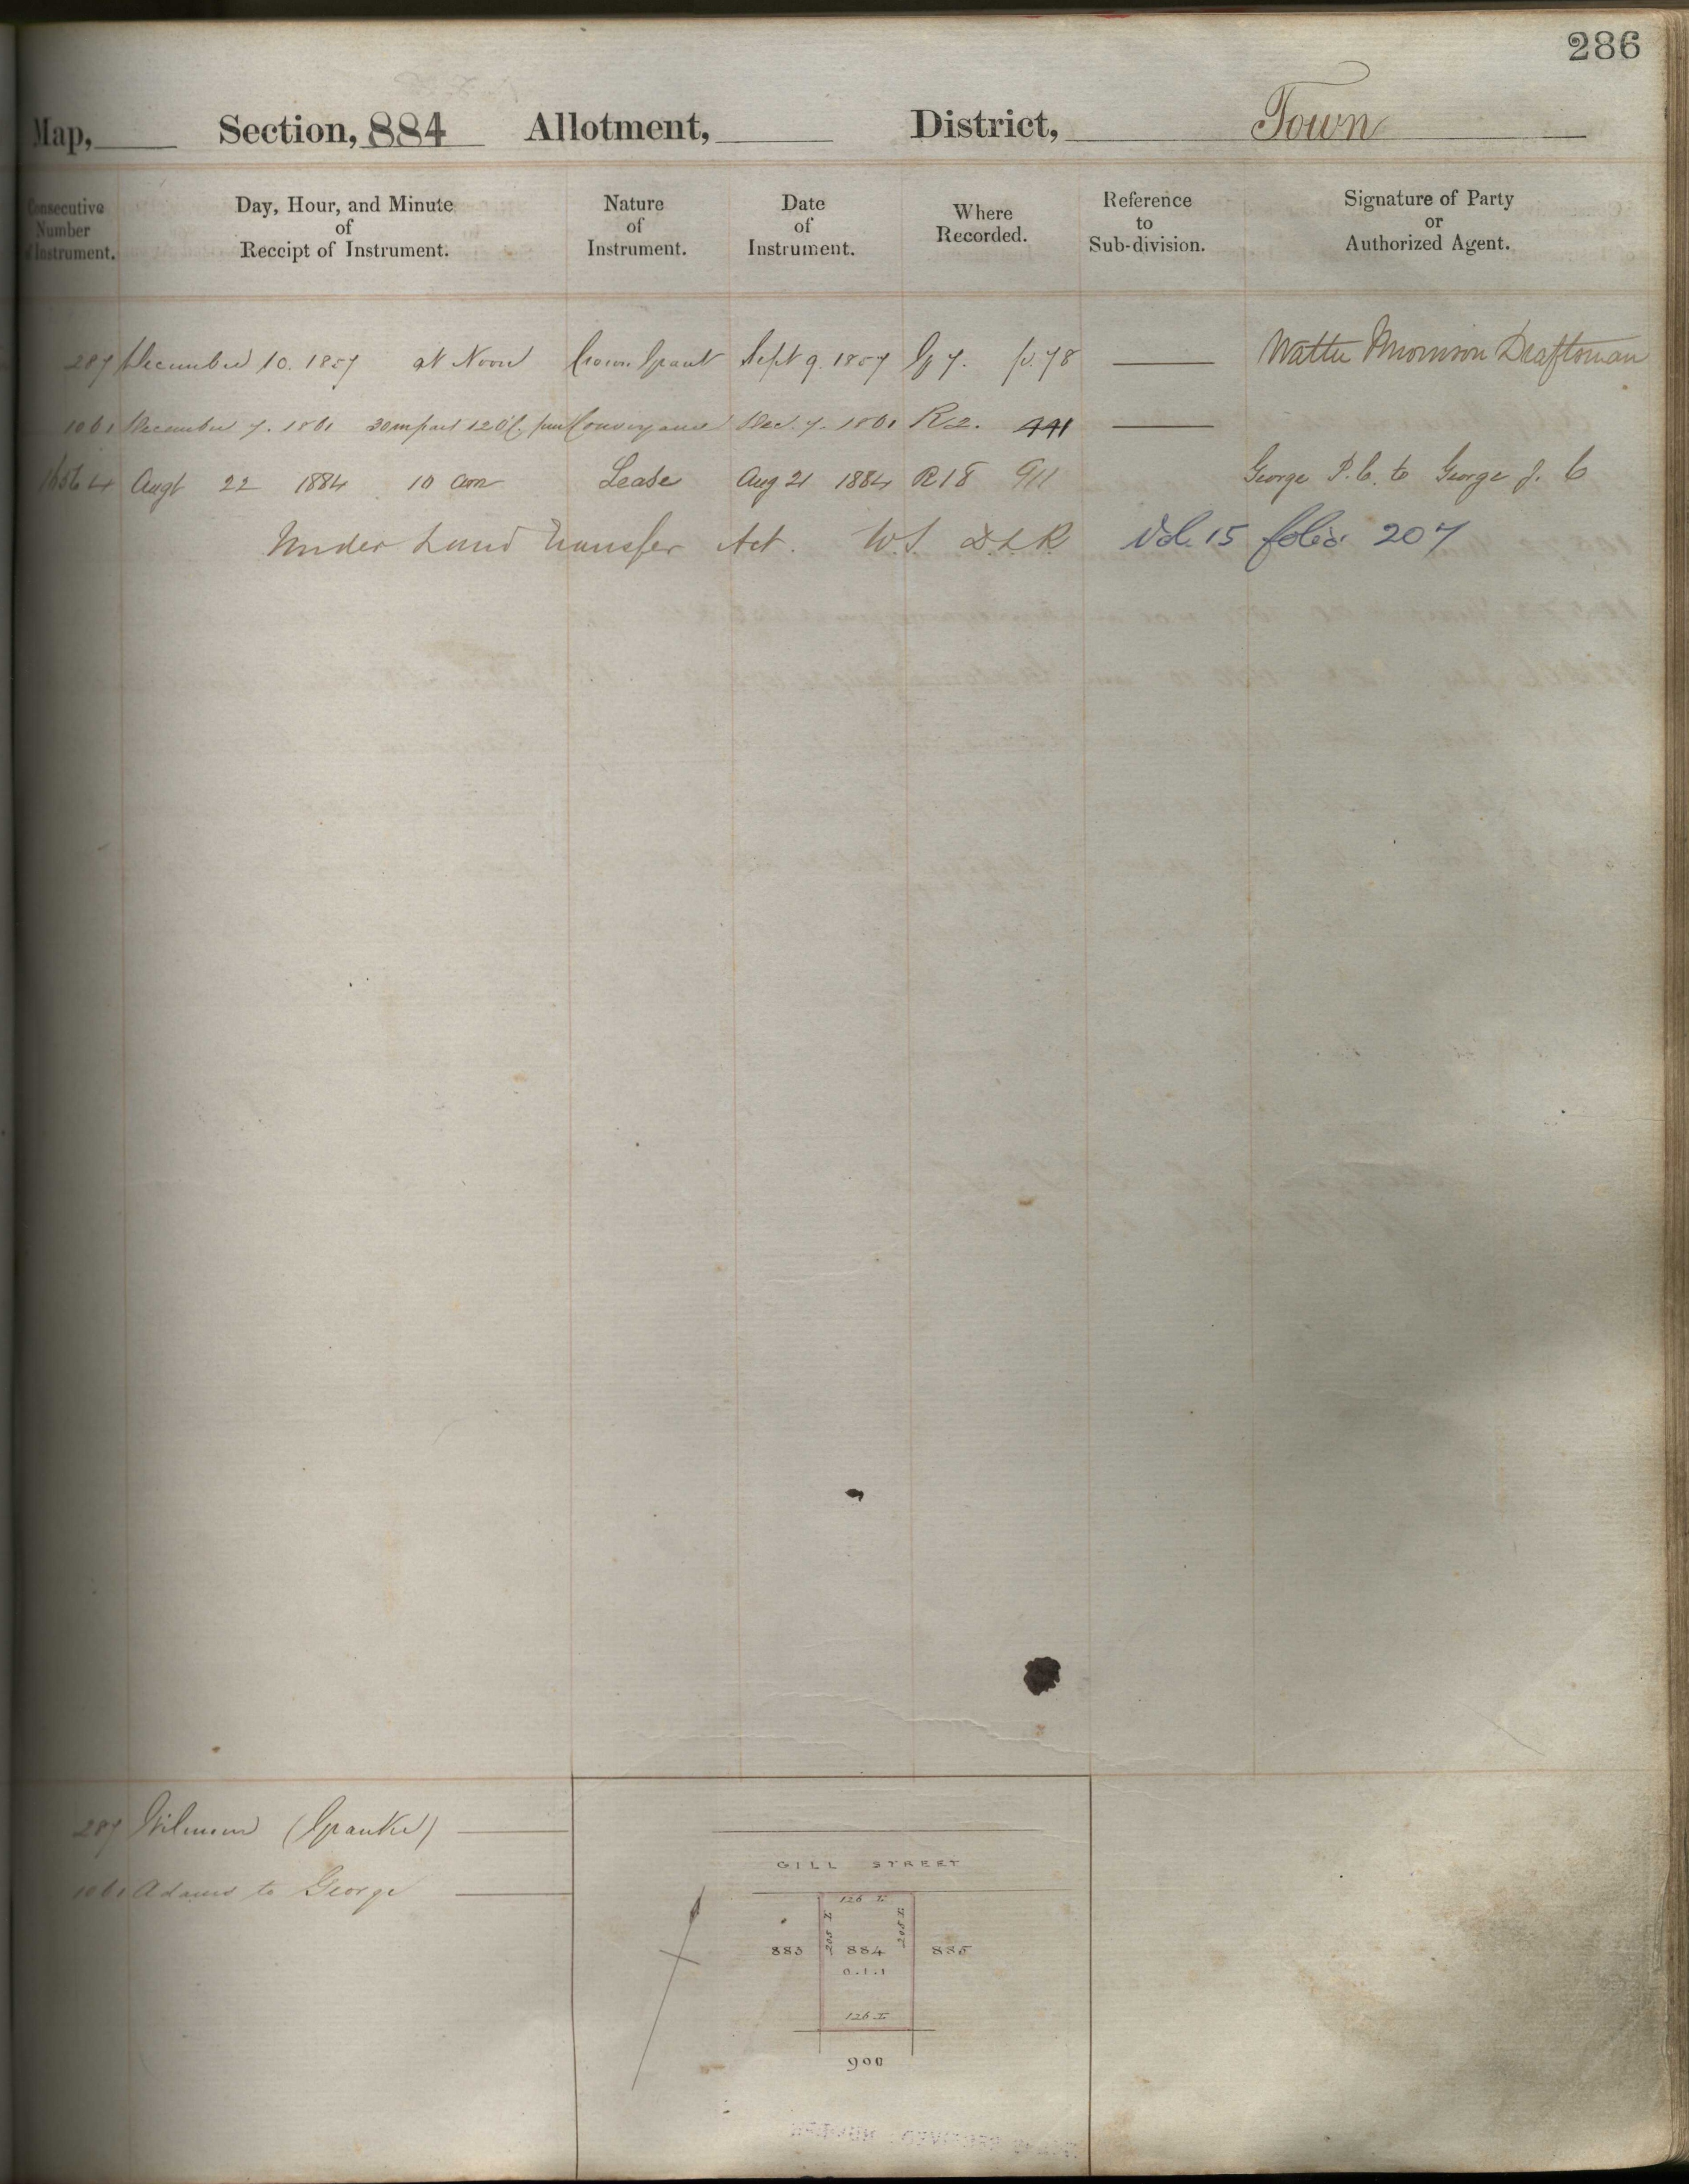 286
Map, Section, 884 Allotment, District, Town
Consecutive Number of Instrument.
Day, Hour, and Minute of Receipt of Instrument.
Nature of Instrument.
Date of Instrument.
Where Recorded.
Reference to Sub-division.
Signature of Party or Authorized Agent.
287 December 10. 1857 at Noon Crown Grant Sept 9. 1857 G 7. p. 78 Morrison Draftsman
1061 December 7. 1861 Conveyance Dec. 7. 1861 R 2. 441
Augt 22 1884 10 am Lease Aug 21 1884 R 18 911 George P. C. to George J. C
Under Land Transfer Act. W.S. D.L.R. Vol. 15 folio 207
287 (Grantee)
1061 Adams to George
GILL STREET
126 L
205 L
205 L
883 884 885
0.1.1
126 L
900